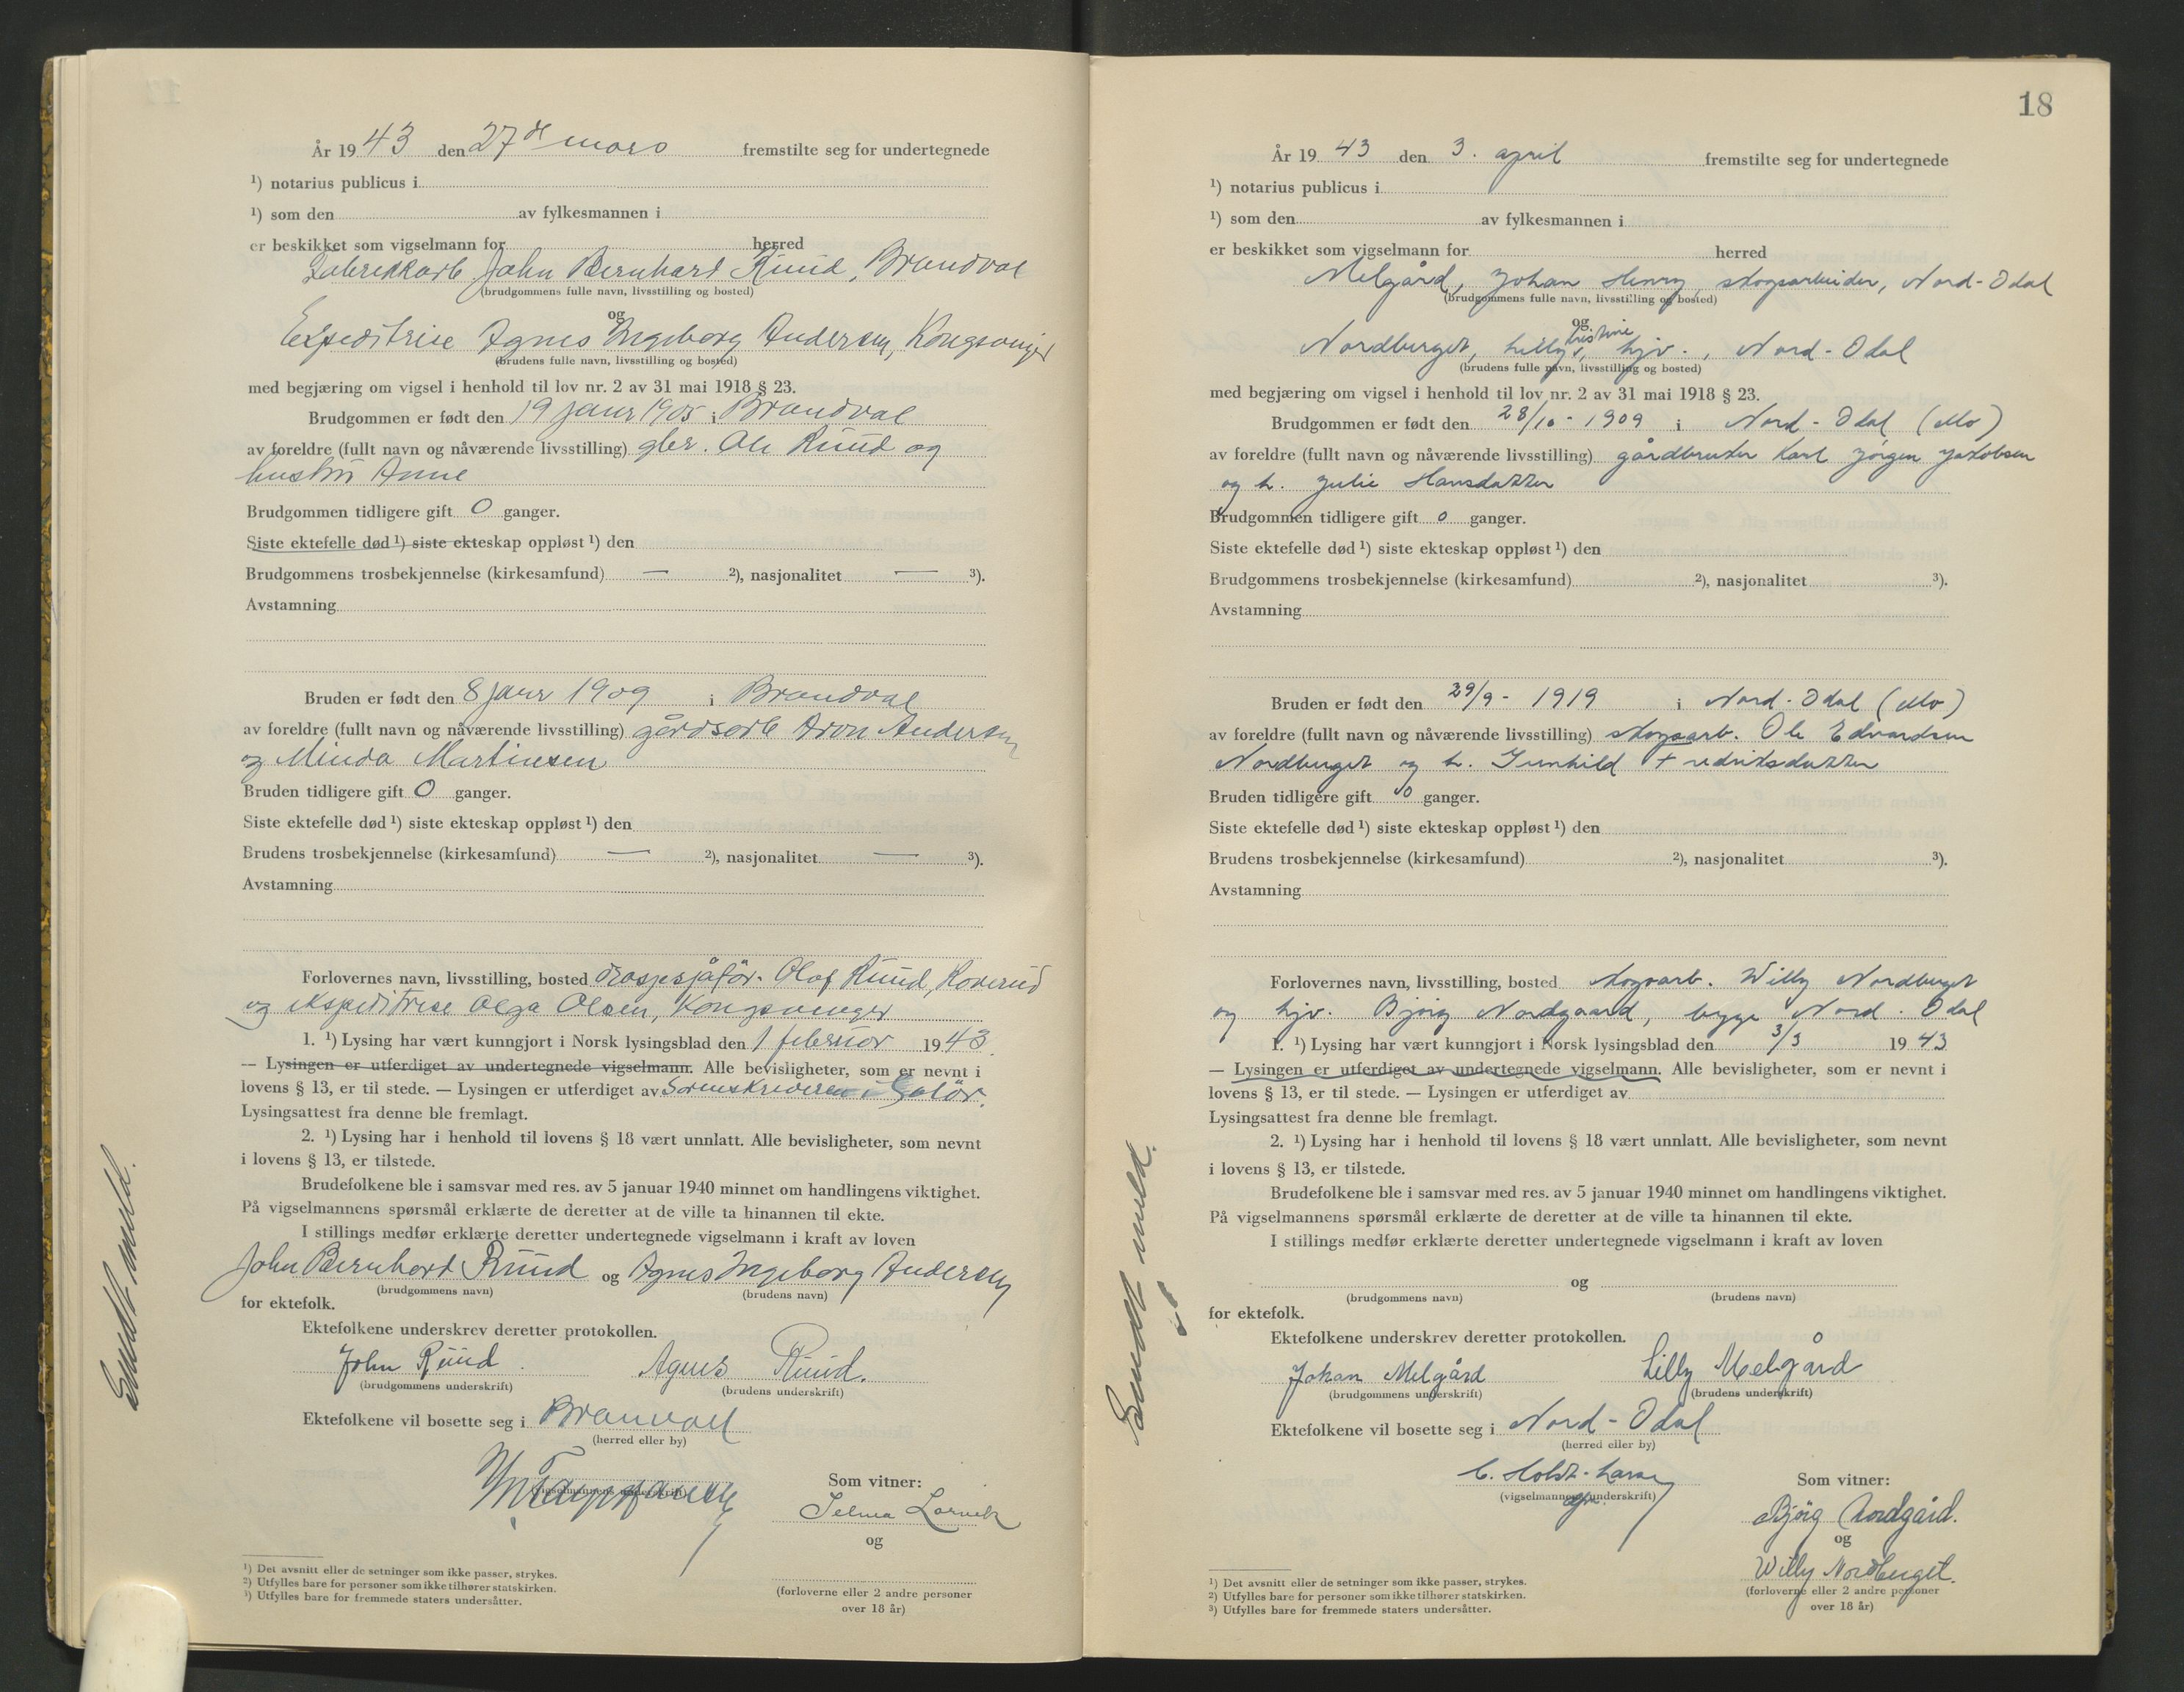 År 1943 den 27de mars fremstilte seg for undertegnede
¹) notarius publicus i
¹) som den av fylkesmannen i
er beskikket som vigselmann for herred
Fabrikkarb John Bernhard Ruud, Brandval
(brudgommens fulle navn, livsstilling og bosted)
og
Expeditrise Agnes Ingeborg Andersen, Kongsvinger
(brudens fulle navn, livsstilling og bosted)
med begjæring om vigsel i henhold til lov nr. 2 av 31 mai 1918 § 23.
Brudgommen er født den 19 janr 1905 i Brandval
av foreldre (fullt navn og nåværende livsstilling) gbr. Ole Ruud og
hustru Anne
Brudgommen tidligere gift 0 ganger.
Siste ektefelle død ¹) siste ekteskap oppløst ¹) den
Brudgommens trosbekjennelse (kirkesamfund) — ²), nasjonalitet — ³).
Avstamning
Bruden er født den 8 janr 1909 i Brandval
av foreldre (fullt navn og nåværende livsstilling) gårdsarb Aron Andersen
og Minda Martinsen
Bruden tidligere gift 0 ganger.
Siste ektefelle død ¹) siste ekteskap oppløst ¹) den
Brudens trosbekjennelse (kirkesamfund) — ²), nasjonalitet — ³).
Avstamning
Forlovernes navn, livsstilling, bosted drospesjåfør. Olaf Ruud, Roverud
og ekspeditrise Olga Olsen, Kongsvinger
1. ¹) Lysing har vært kunngjort i Norsk lysingsblad den 1 februar 1943
— Lysingen er utferdiget av undertegnede vigselmann. Alle bevisligheter, som er nevnt i
lovens § 13, er til stede. — Lysingen er utferdiget av Sorenskriveren i Solør.
Lysingsattest fra denne ble fremlagt.
2. ¹) Lysing har i henhold til lovens § 18 vært unnlatt. Alle bevisligheter, som nevnt
i lovens § 13, er tilstede.
Brudefolkene ble i samsvar med res. av 5 januar 1940 minnet om handlingens viktighet.
På vigselmannens spørsmål erklærte de deretter at de ville ta hinannen til ekte.
I stillings medfør erklærte deretter undertegnede vigselmann i kraft av loven
John Bernhard Ruud og Agnes Ingeborg Andersen
(brudgommens navn) (brudens navn)
for ektefolk.
Ektefolkene underskrev deretter protokollen.
John Ruud. Agnes Ruud.
(brudgommens underskrift) (brudens underskrift)
Ektefolkene vil bosette seg i Branvall
(herred eller by)
(vigselmannens underskrift)
Som vitner:
Selma Larvik
og
(forloverne eller 2 andre personer
over 18 år)
¹) Det avsnitt eller de setninger som ikke passer, strykes.
²) Utfylles bare for personer som ikke tilhører statskirken.
³) Utfylles bare for fremmede staters undersåtter.
Sendt meld.
18
År 1943 den 3. april fremstilte seg for undertegnede
¹) notarius publicus i
¹) som den av fylkesmannen i
er beskikket som vigselmann for herred
Melgård, Johan Henry, skogsarbeider, Nord-Odal
(brudgommens fulle navn, livsstilling og bosted)
og
Nordberget, Lilly Kristine, hjv., Nord-Odal
(brudens fulle navn, livsstilling og bosted)
med begjæring om vigsel i henhold til lov nr. 2 av 31 mai 1918 § 23.
Brudgommen er født den 28/10 - 1909 i Nord-Odal (Mo)
av foreldre (fullt navn og nåværende livsstilling) gårdbruker Karl Jørgen Jakobsen
og h. Julie Hansdatter
Brudgommen tidligere gift 0 ganger.
Siste ektefelle død ¹) siste ekteskap oppløst ¹) den
Brudgommens trosbekjennelse (kirkesamfund) ²), nasjonalitet ³).
Avstamning
Bruden er født den 29/9 - 1919 i Nord-Odal (Mo)
av foreldre (fullt navn og nåværende livsstilling) skogsarb. Ole Edvardsen
Nordberget og h. Gunhild Fredriksdatter
Bruden tidligere gift 0 ganger.
Siste ektefelle død ¹) siste ekteskap oppløst ¹) den
Brudens trosbekjennelse (kirkesamfund) ²), nasjonalitet ³).
Avstamning
Forlovernes navn, livsstilling, bosted skogsarb. Willy Nordberget
og hjv. Bjørg Nordgaard, begge Nord-Odal
1. ¹) Lysing har vært kunngjort i Norsk lysingsblad den 3/3 1943
— Lysingen er utferdiget av undertegnede vigselmann. Alle bevisligheter, som er nevnt i
lovens § 13, er til stede. — Lysingen er utferdiget av
Lysingsattest fra denne ble fremlagt.
2. ¹) Lysing har i henhold til lovens § 18 vært unnlatt. Alle bevisligheter, som nevnt
i lovens § 13, er tilstede.
Brudefolkene ble i samsvar med res. av 5 januar 1940 minnet om handlingens viktighet.
På vigselmannens spørsmål erklærte de deretter at de ville ta hinannen til ekte.
I stillings medfør erklærte deretter undertegnede vigselmann i kraft av loven
og
(brudgommens navn) (brudens navn)
for ektefolk.
Ektefolkene underskrev deretter protokollen.
Johan Melgård Lilly Melgård
(brudgommens underskrift) (brudens underskrift)
Ektefolkene vil bosette seg i Nord-Odal
(herred eller by)
C. Holst-Larsen
(vigselmannens underskrift)
Som vitner:
Bjørg Nordgård.
og
Willy Nordberget.
(forloverne eller 2 andre personer
over 18 år)
¹) Det avsnitt eller de setninger som ikke passer, strykes.
²) Utfylles bare for personer som ikke tilhører statskirken.
³) Utfylles bare for fremmede staters undersåtter.
Sendt meld.